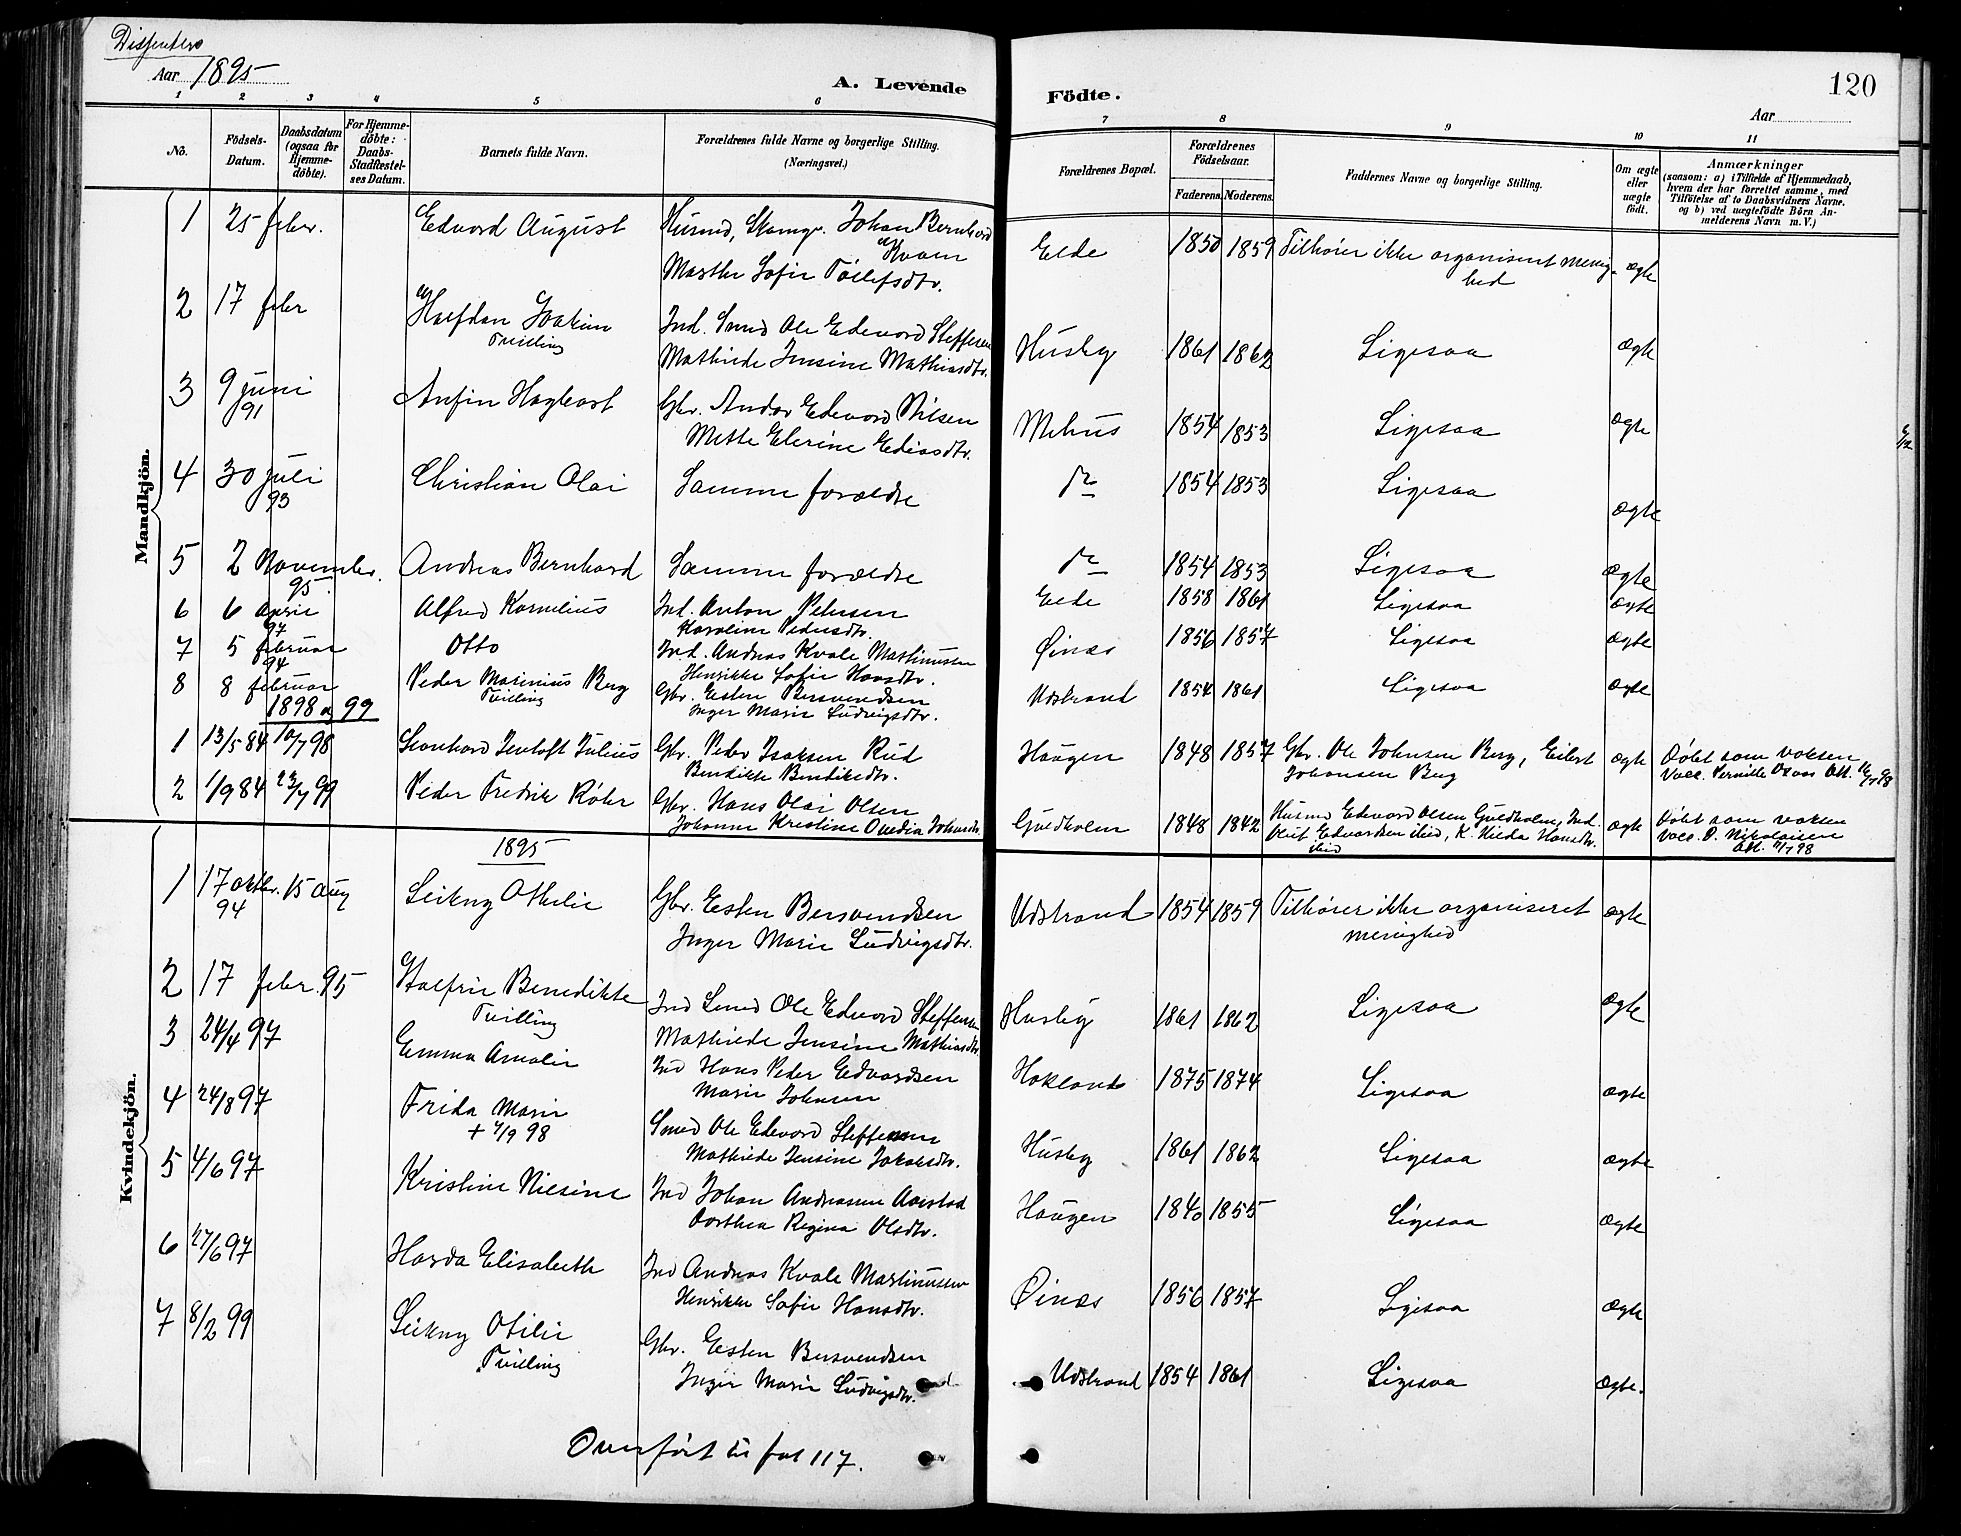 Dissenters
Aar 1895
A. Levende Födte.
120
Aar
1 2 3 4 5 6 7 8 9 10 11
No.
Födsels-Datum.
Daabsdatum (ogsaa for Hjemme-döbte).
For Hjemme-döbte: Daabs-Stadfæstel-ses Datum.
Barnets fulde Navn.
Forældrenes fulde Navne og borgerlige Stilling. (Næringsvei.)
Forældrenes Bopæl.
Forældrenes Födselsaar.
Faderens. Moderens.
Faddernes Navne og borgerlige Stilling.
Om ægte eller uægte födt.
Anmærkninger
(saasom: a) i Tilfælde af Hjemmedaab,
hvem der har forrettet samme, med
Tilföielse af to Daabsvidners Navne,
og b) ved uægtefödte Börn An-
melderens Navn m. V.)
Mandkjön.
1 25 febr. Edvard August Husmd, Johan Bernhard Kvam Elde 1850 1859 Tilhører ikke organiseret menig-
Marthe Sofie Tollefsdtr. hed ægte
2 17 febr Halfdan Joakim Ind. Smed Ole Edevard Steffensen Husby 1861 1862 Ligesaa ægte
Tvilling Mathilde Jensine Mathiasdtr.
3 9 juni Anfin Hagbart Gbr. Andor Edevard Nilsen Mehus 1854 1853 Ligesaa ægte
91 Mette Elerine Eliasdtr.
4 30 juli Christian Olai Samme forældre do 1854 1853 Ligesaa ægte
93
5 2 November. Andreas Bernhard Samme forældre do 1854 1853 Ligesaa ægte
95.
6 6 april Alfred Kornelius Ind. Anton Petersen Elde 1858 1861 Ligesaa ægte
97 Karoline Pedersdtr.
7 5 februar Otto Ind. Andreas Kvale Martinussen Øinæs 1856 1857 Ligesaa ægte
94 Henrikke Sofie Hansdtr.
8 8 februar Peder Marinius Berg Gbr. Esten Bersvendsen Udstrand 1854 1861 Ligesaa ægte
Tvilling Inger Marie Ludvigsdtr.
1898 & 99
1 13/5 84 10/7 98 Leonhard Jentoft Julius Gbr. Peder Isaksen Rud Haugen 1848 1857 Gbr. Ole Johnsen Berg, Eilert ægte Døbt som voksen
Bendikte Bendiksdtr. Johansen Berg Vacc. Pernille Att.
2 1/9 84 23/7 99 Peder Fredrik Röhr Gbr. Hans Olai Olsen Guldholm 1848 1842 Husmd Edevard Olsen Guldholm, Ind. ægte Døbt som voksen
Johanne Kristine Ovedia Johnsdtr. Oluf Edvardsen ibid, K. Hilda Hansdtr. Vacc. O. Nikolaisen
ibid Att. 98
Kvindekjön.
1895
1 17 oktbr. 15 aug Leikny Othilie Gbr. Esten Bersvendsen Udstrand 1854 1859 Tilhører ikke organiseret ægte
94 Inger Marie Ludvigsdtr. menighed
2 17 febr. 95 Halfrie Benedikte Ind Smed Ole Edvard Steffensen Husby 1861 1862 Ligesaa ægte
Tvilling Mathilde Jensine Mathiasdtr.
3 24/4 97 Emma Amalie Ind Hans Peder Edvardsen Hokland 1875 1874 Ligesaa ægte
Marie Johnsen
4 24/8 97 Frida Marie Smed Ole Edevard Steffensen Husby 1861 1862 Ligesaa ægte
+ 4/9 98 Mathilde Jensine Jakobsdtr.
5 4/6 97 Kristine Nilsine Ind Johan Andreasen Aarstad Haugen 1840 1855 Ligesaa ægte
Dorthea Regina Olsdtr.
6 27/6 97 Harda Elisabeth Ind Andreas Kvale Martinussen Øinæs 1856 1857 Ligesaa ægte
Henrikke Sofie Hansdtr.
7 8/2 99 Leikny Otilie Gbr. Esten Bersvendsen Udstrand 1854 1861 Ligesaa ægte.
Tvilling Inger Marie Ludvigsdtr.
Overført til fol 117.